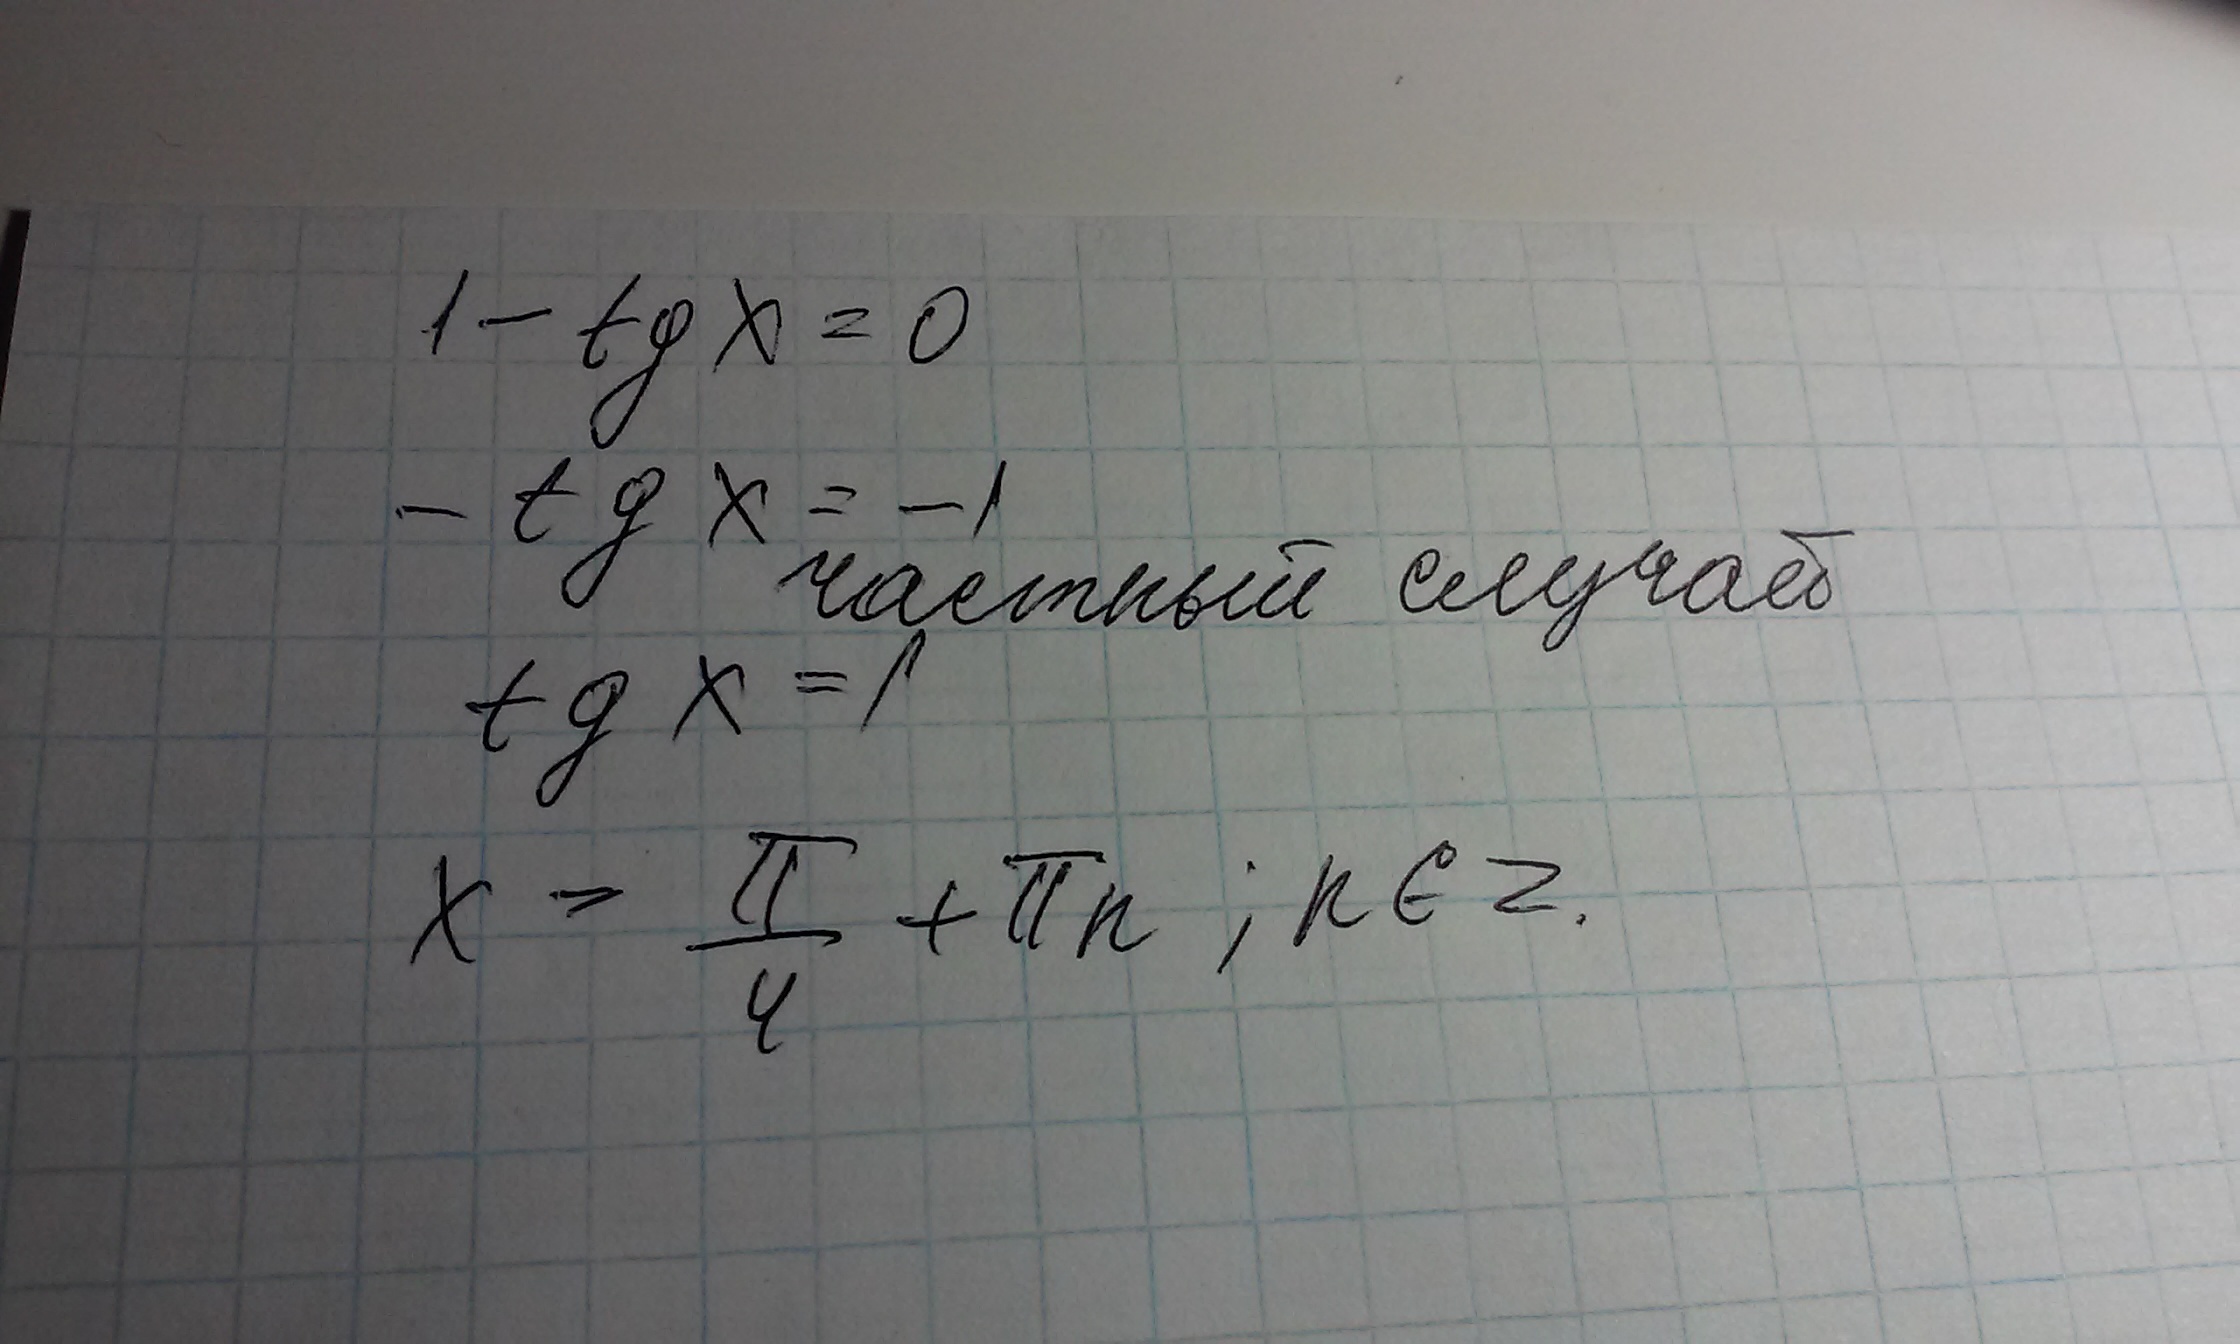 1 - tg x = 0
- tg x = -1
частный случай
tg x = 1
x = π/4 + πn ; n ∈ Z.